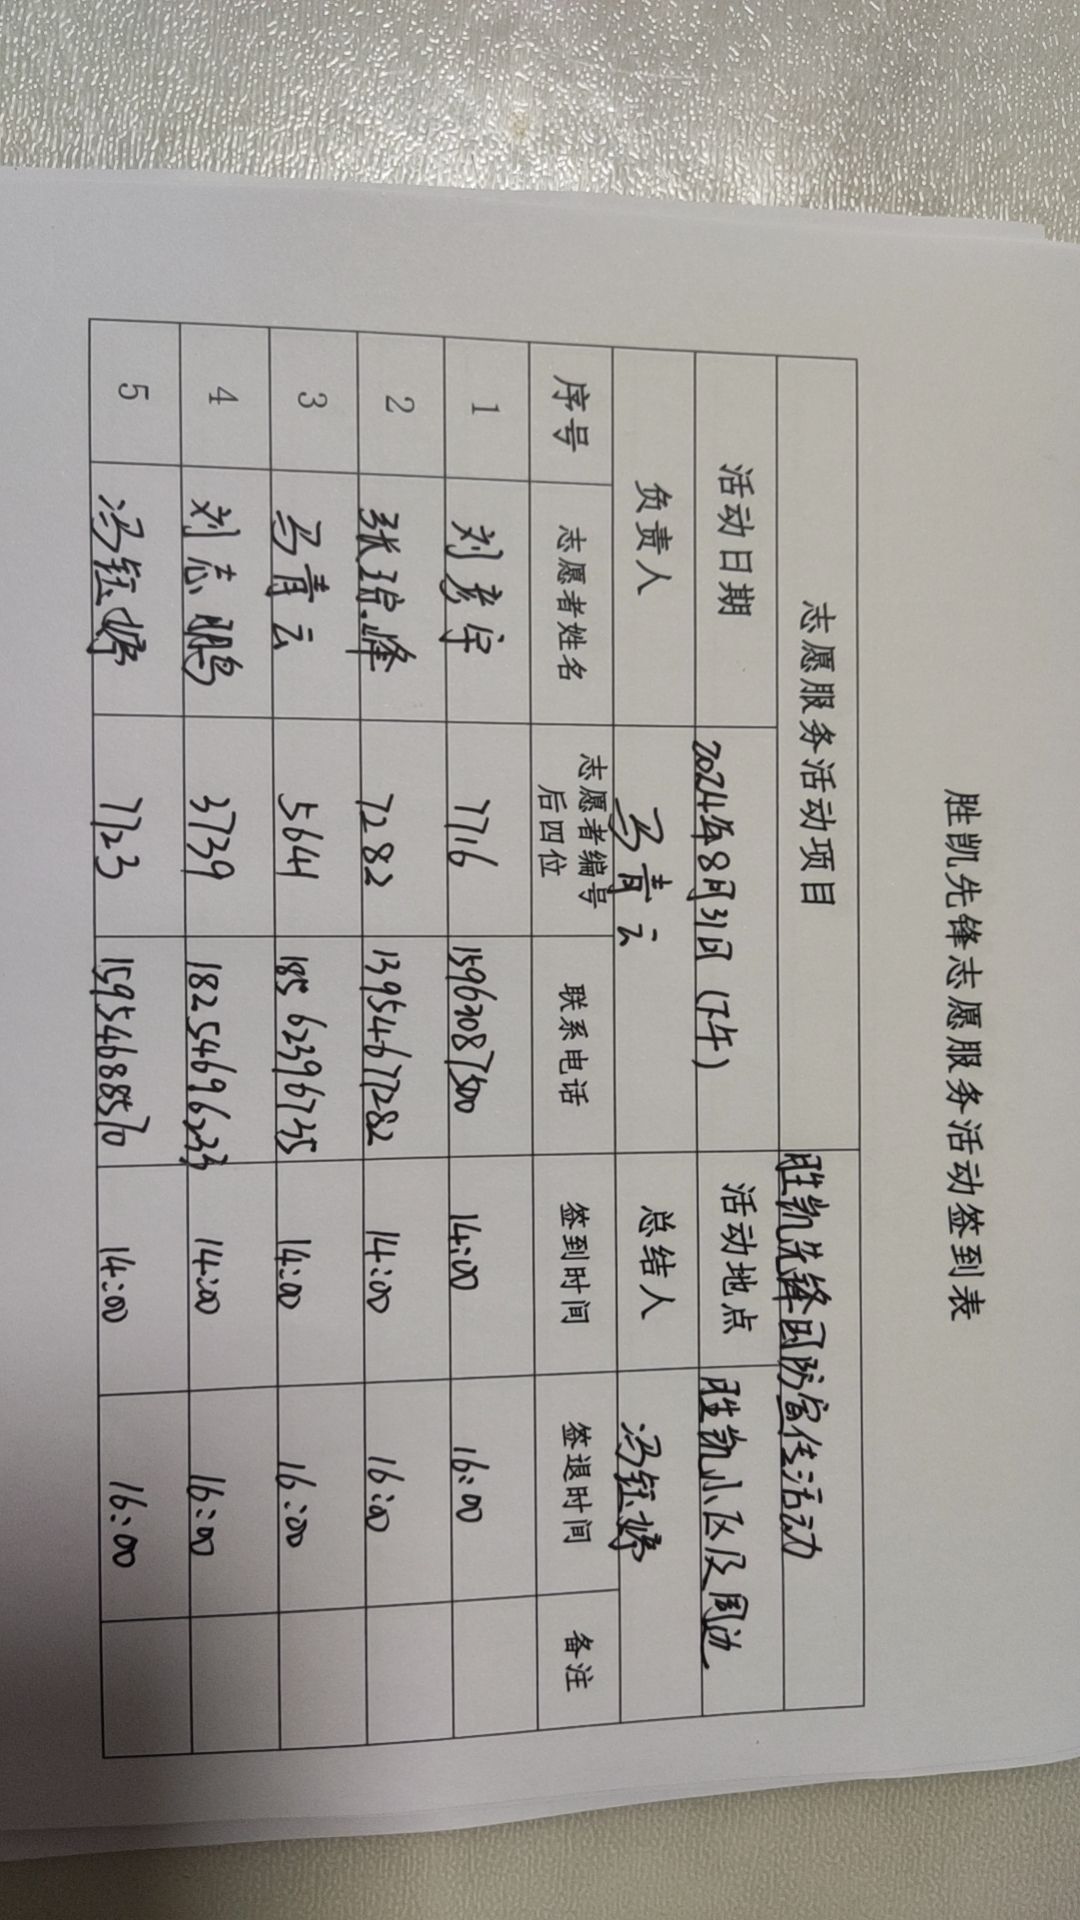 胜凯先锋志愿服务活动签到表
志愿服务活动项目 胜凯先锋国防宣传活动
活动日期 2024年8月31日(下午) 活动地点 胜凯小区及周边
负责人 马青云 总结人 冯钰婷
序号 志愿者姓名 志愿者编号后四位 联系电话 签到时间 签退时间 备注
1 刘彦宇 7716 15963087500 14:00 16:00
2 张瑞峰 7282 13954677282 14:00 16:00
3 马青云 5641 18562396735 14:00 16:00
4 刘志鹏 3739 18254696233 14:00 16:00
5 冯钰婷 7723 15954688570 14:00 16:00